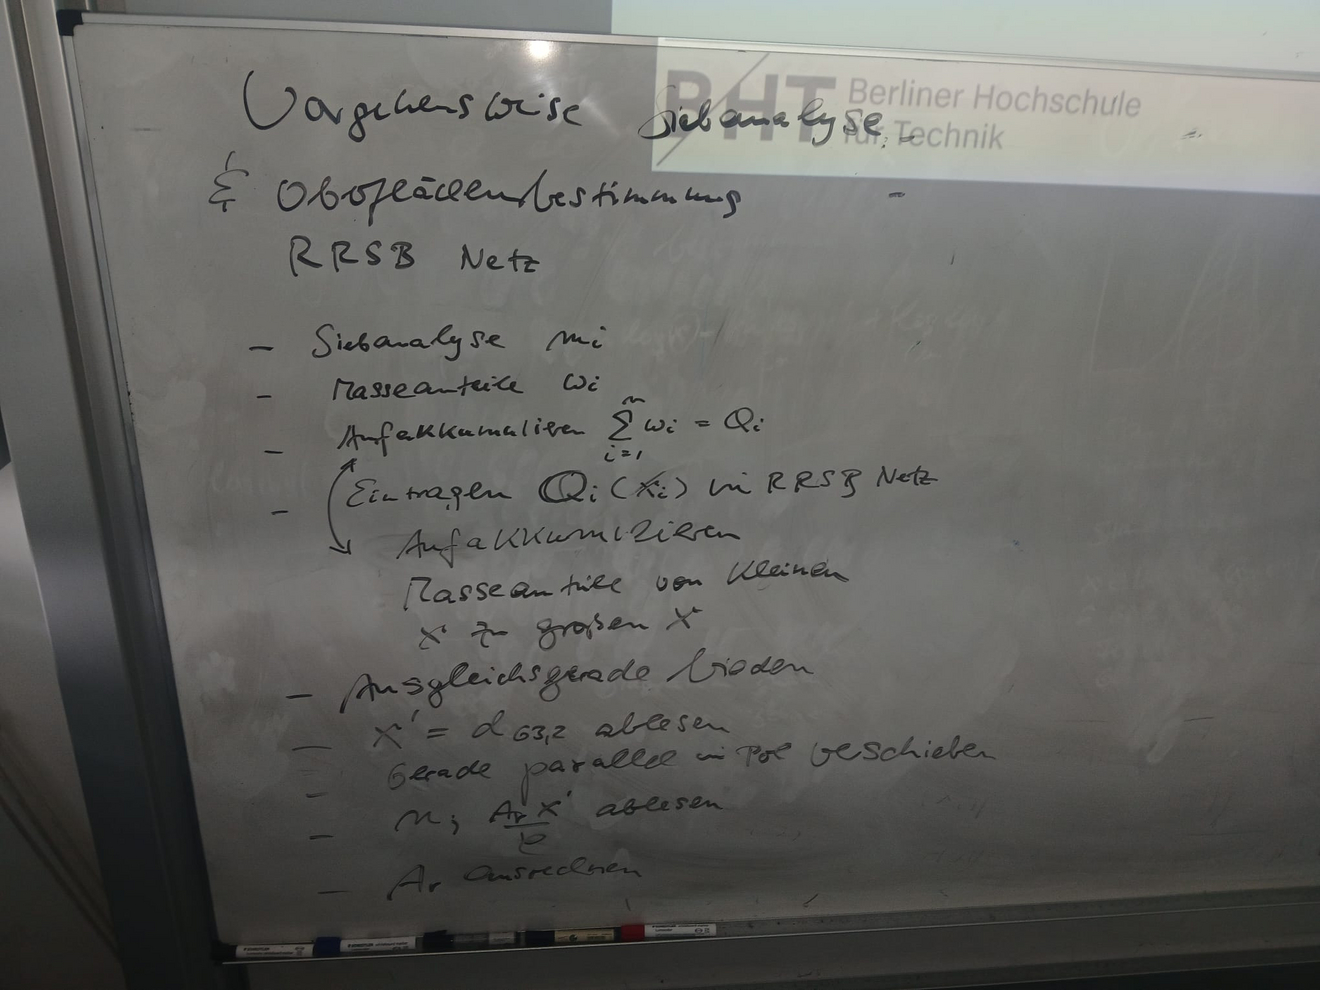 BHT Berliner Hochschule
für Technik
Vorgehensweise Siebanalyse
& Oberflächenbestimmung
RRSB Netz
- Siebanalyse mi
- Masseanteile ωi
- Aufakkumulieren ∑ⁿᵢ₌₁ ωi = Qi
- Eintragen Qi (xi) in RRSB Netz
Aufakkumulieren
Masseanteile von kleinen
x zu großen x
- Ausgleichsgerade bilden
- x' = d 63,2 ablesen
- Gerade parallel in Pol verschieben
- n; Ar x' / φ ablesen
- Ar ausrechnen